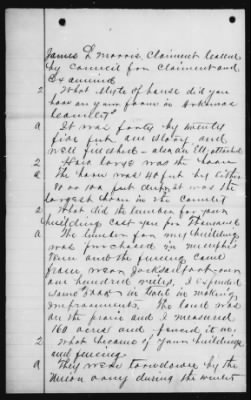 James L Morris, Claiment
by Council for Claiment and
Examined
2 What style of house did you
have on your farm in Arkansas
a It was forty by twenty
five feet, one story and
well finished -
2 How large was the barn
a The barn was 40 feet by either
80 or 100 feet but it was the
largest barn in the County
2 What did the lumber for your
building cost you per Thousand
a The lumber for my building
was purchased in Memphis
Tenn and the fencing came
from near Jacksonport
one hundred miles, I expended
some in making
improvements, The land was
on the prairie and I measured
160 acres and fenced it in,
2 What became of your buildings
and fencing
a They were torn down by the
Union army during the winter